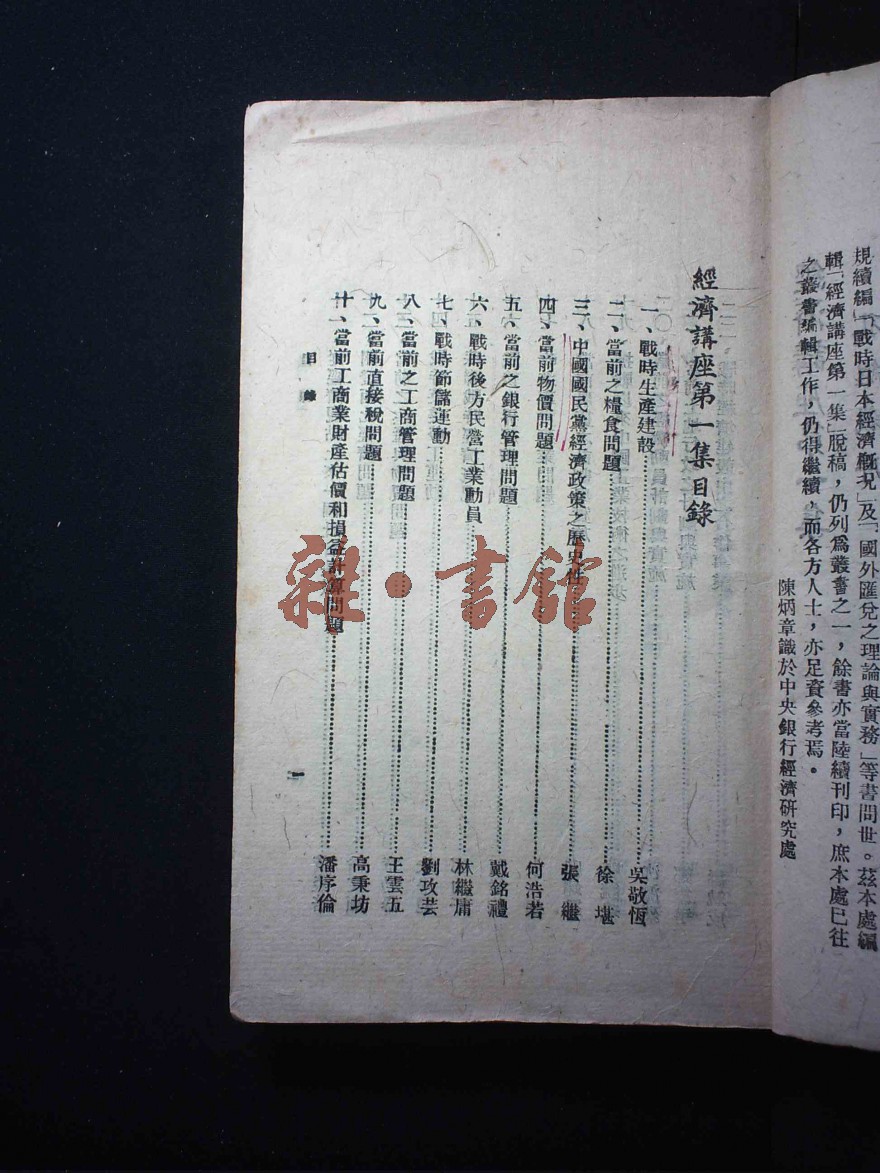 規續編」「戰時日本經濟概況」及「國外匯兌之理論與實務」等書問世。茲本處編
輯「經濟講座第一集」脫稿，仍列為叢書之一，餘書亦當陸續刊印，庶本處已往
之叢書編輯工作，仍得繼續，而各方人士，亦足資參考焉。
陳炳章識於中央銀行經濟研究處
經濟講座第一集目錄
一、戰時生產建設……吳敬恆
二、當前之糧食問題……徐堪
三、中國國民黨經濟政策之歷史性……張繼
四、當前物價問題……何浩若
五、當前之銀行管理問題……戴銘禮
六、戰時後方民營工業動員……林繼庸
七、戰時節儲運動……劉攻芸
八、當前之工商管理問題……王雲五
九、當前直接稅問題……高秉坊
十、當前工商業財產估價和損益計算問題……潘序倫
目錄
一
雜·書館